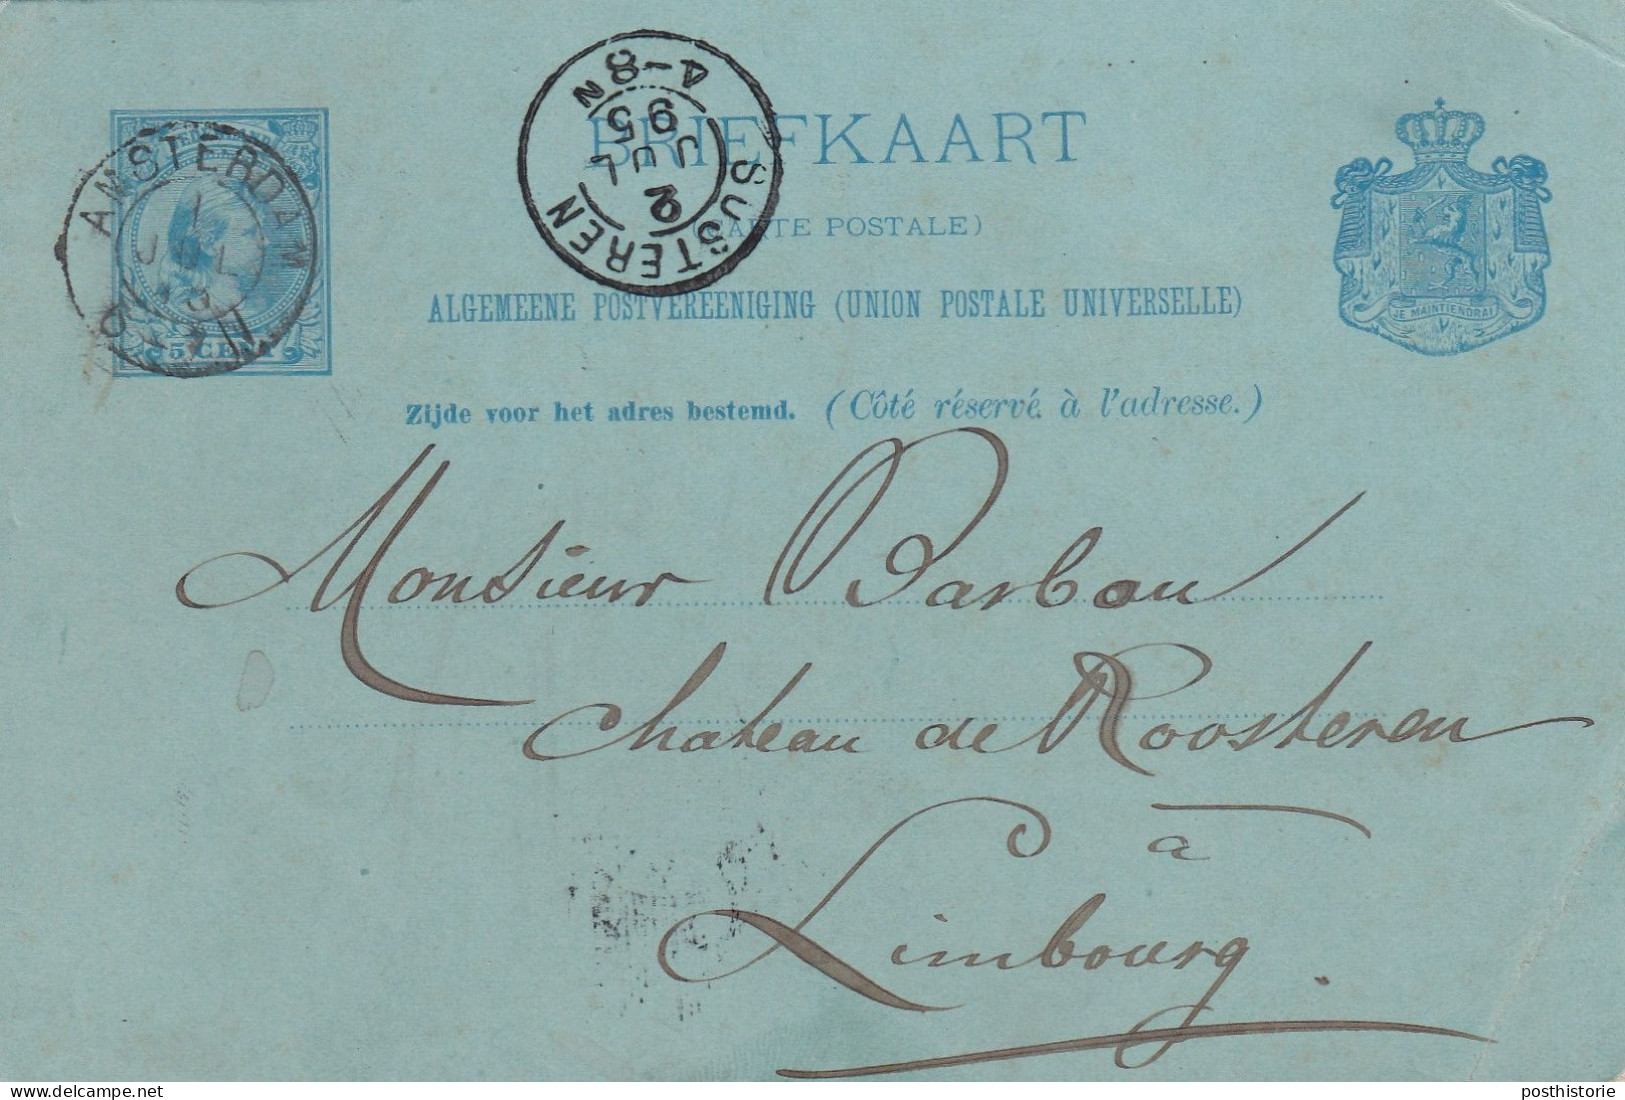 BRIEFKAART
(CARTE POSTALE)
ALGEMEENE POSTVEREENIGING (UNION POSTALE UNIVERSELLE)
Zijde voor het adres bestemd. (Côté réservé à l'adresse.)
AMSTERDAM
1
JUL
5 CENT
SUSTEREN
2
JUL
95
4-8N
JE MAINTIENDRAI
Monsieur Barbou
Chateau de Roosteren
à
Limbourg.
posthistorie